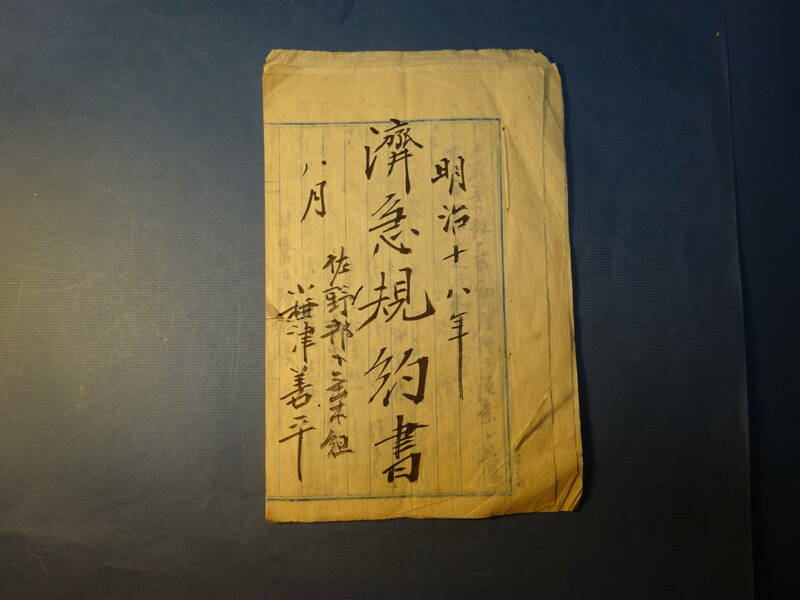 明治十八年
濟急規約書
八月
佐野郡
小梅津善平